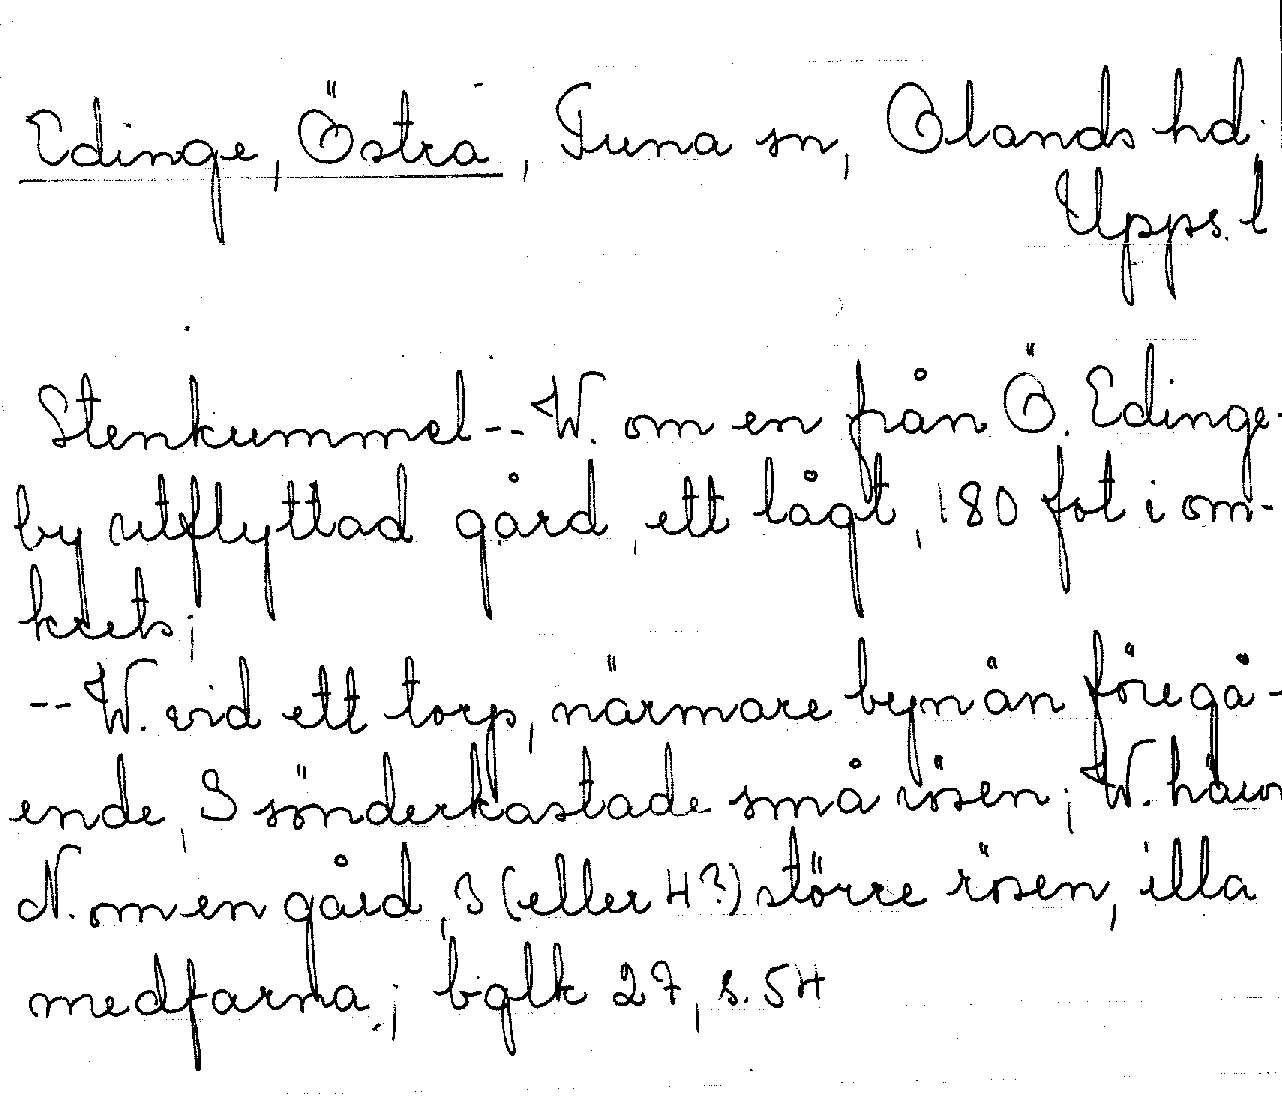 Edinge, Östra, Tuna sn, Olands hd.
Upps. l
Stenkummel-- W. om en från Ö. Edinge-
by utflyttad gård, ett lågt, 180 fot i om-
krets;
-- W. vid ett torp, närmare byn än föregå-
ende, 3 sönderkastade små rösen; W.
N. om en gård, 3 (eller 4?) större rösen, illa
medfarna; bglk 27, s. 54